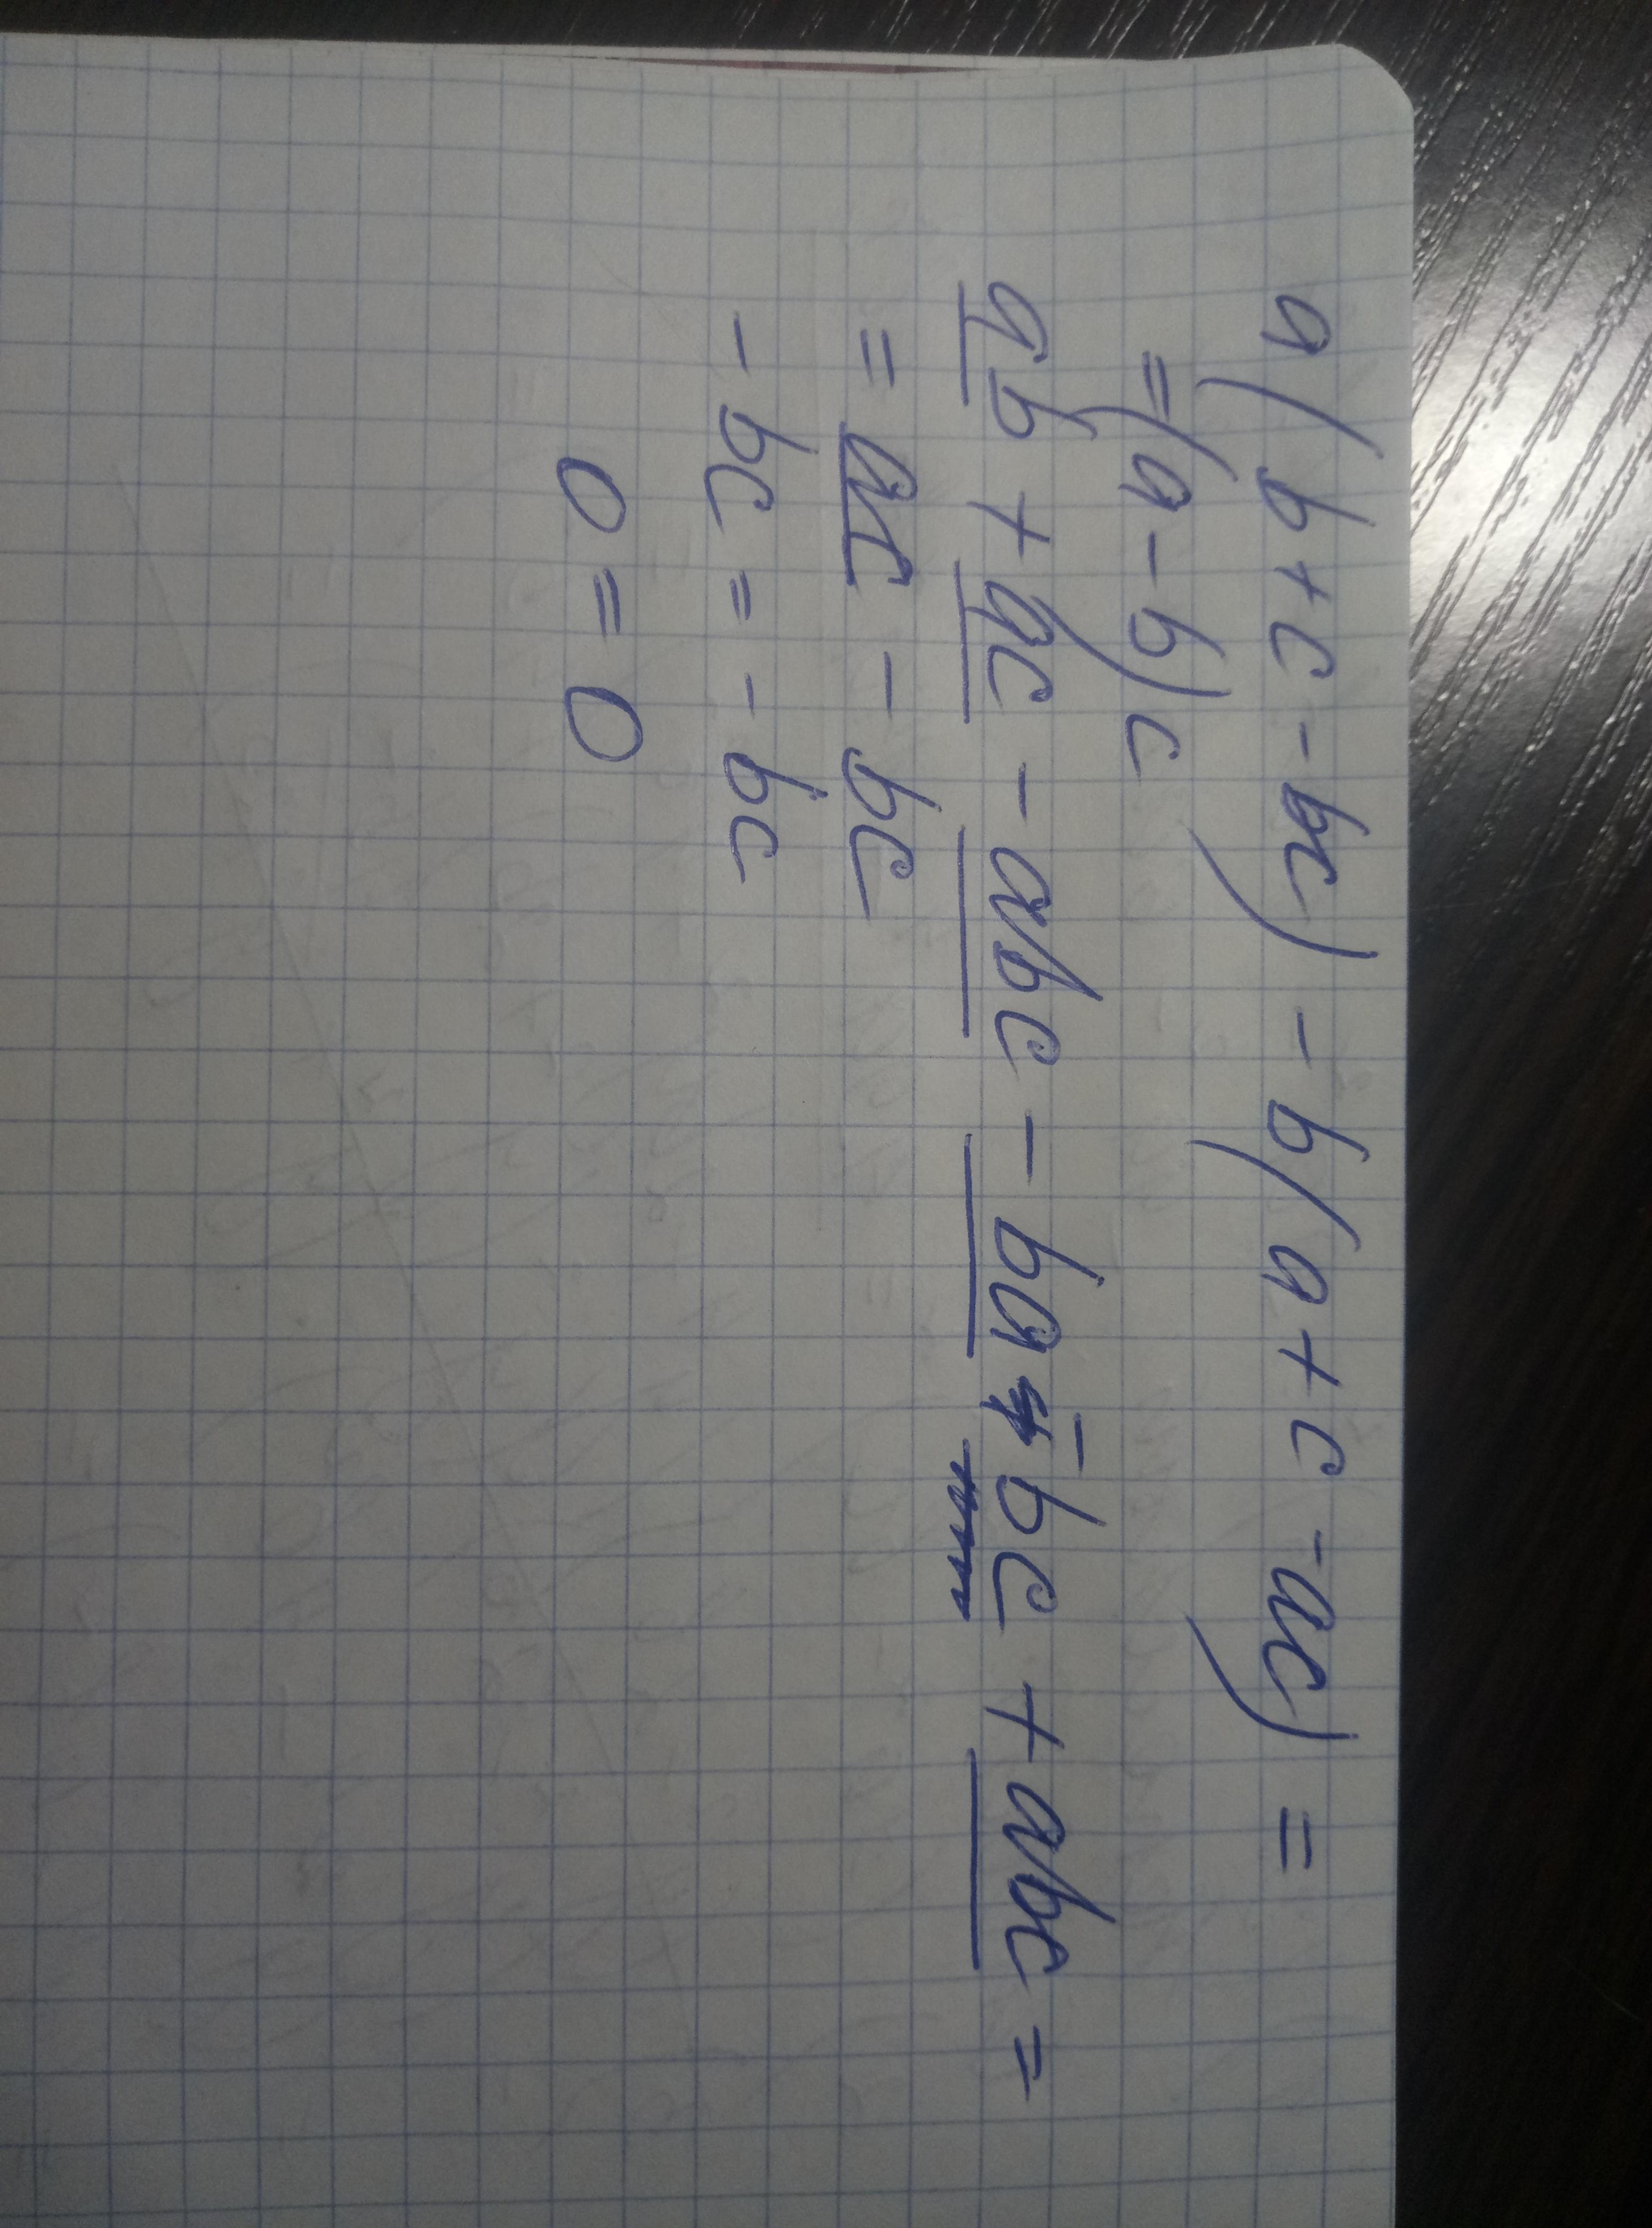 a(b+c-bc)-b(a+c-ac)=
=(a-b)c
ab+ac-abc-ba-bc+abc=
=ac-bc
-bc=-bc
0=0